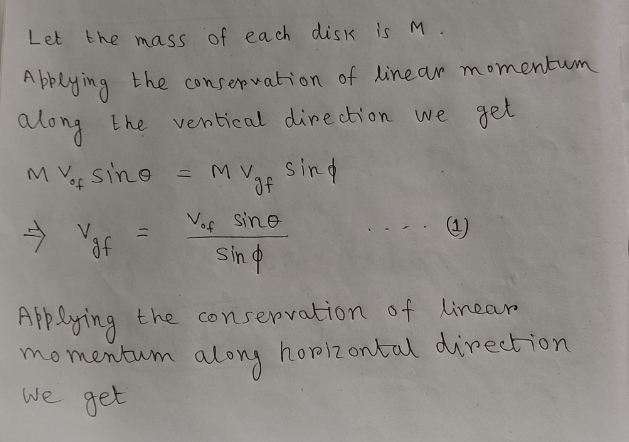 Let the mass of each disk is M.
Applying the conservation of linear momentum
along the vertical direction we get
M V_of sinθ = M V_gf sinϕ
⇒ V_gf = V_of sinθ / sinϕ .... (1)
Applying the conservation of linear
momentum along horizontal direction
we get